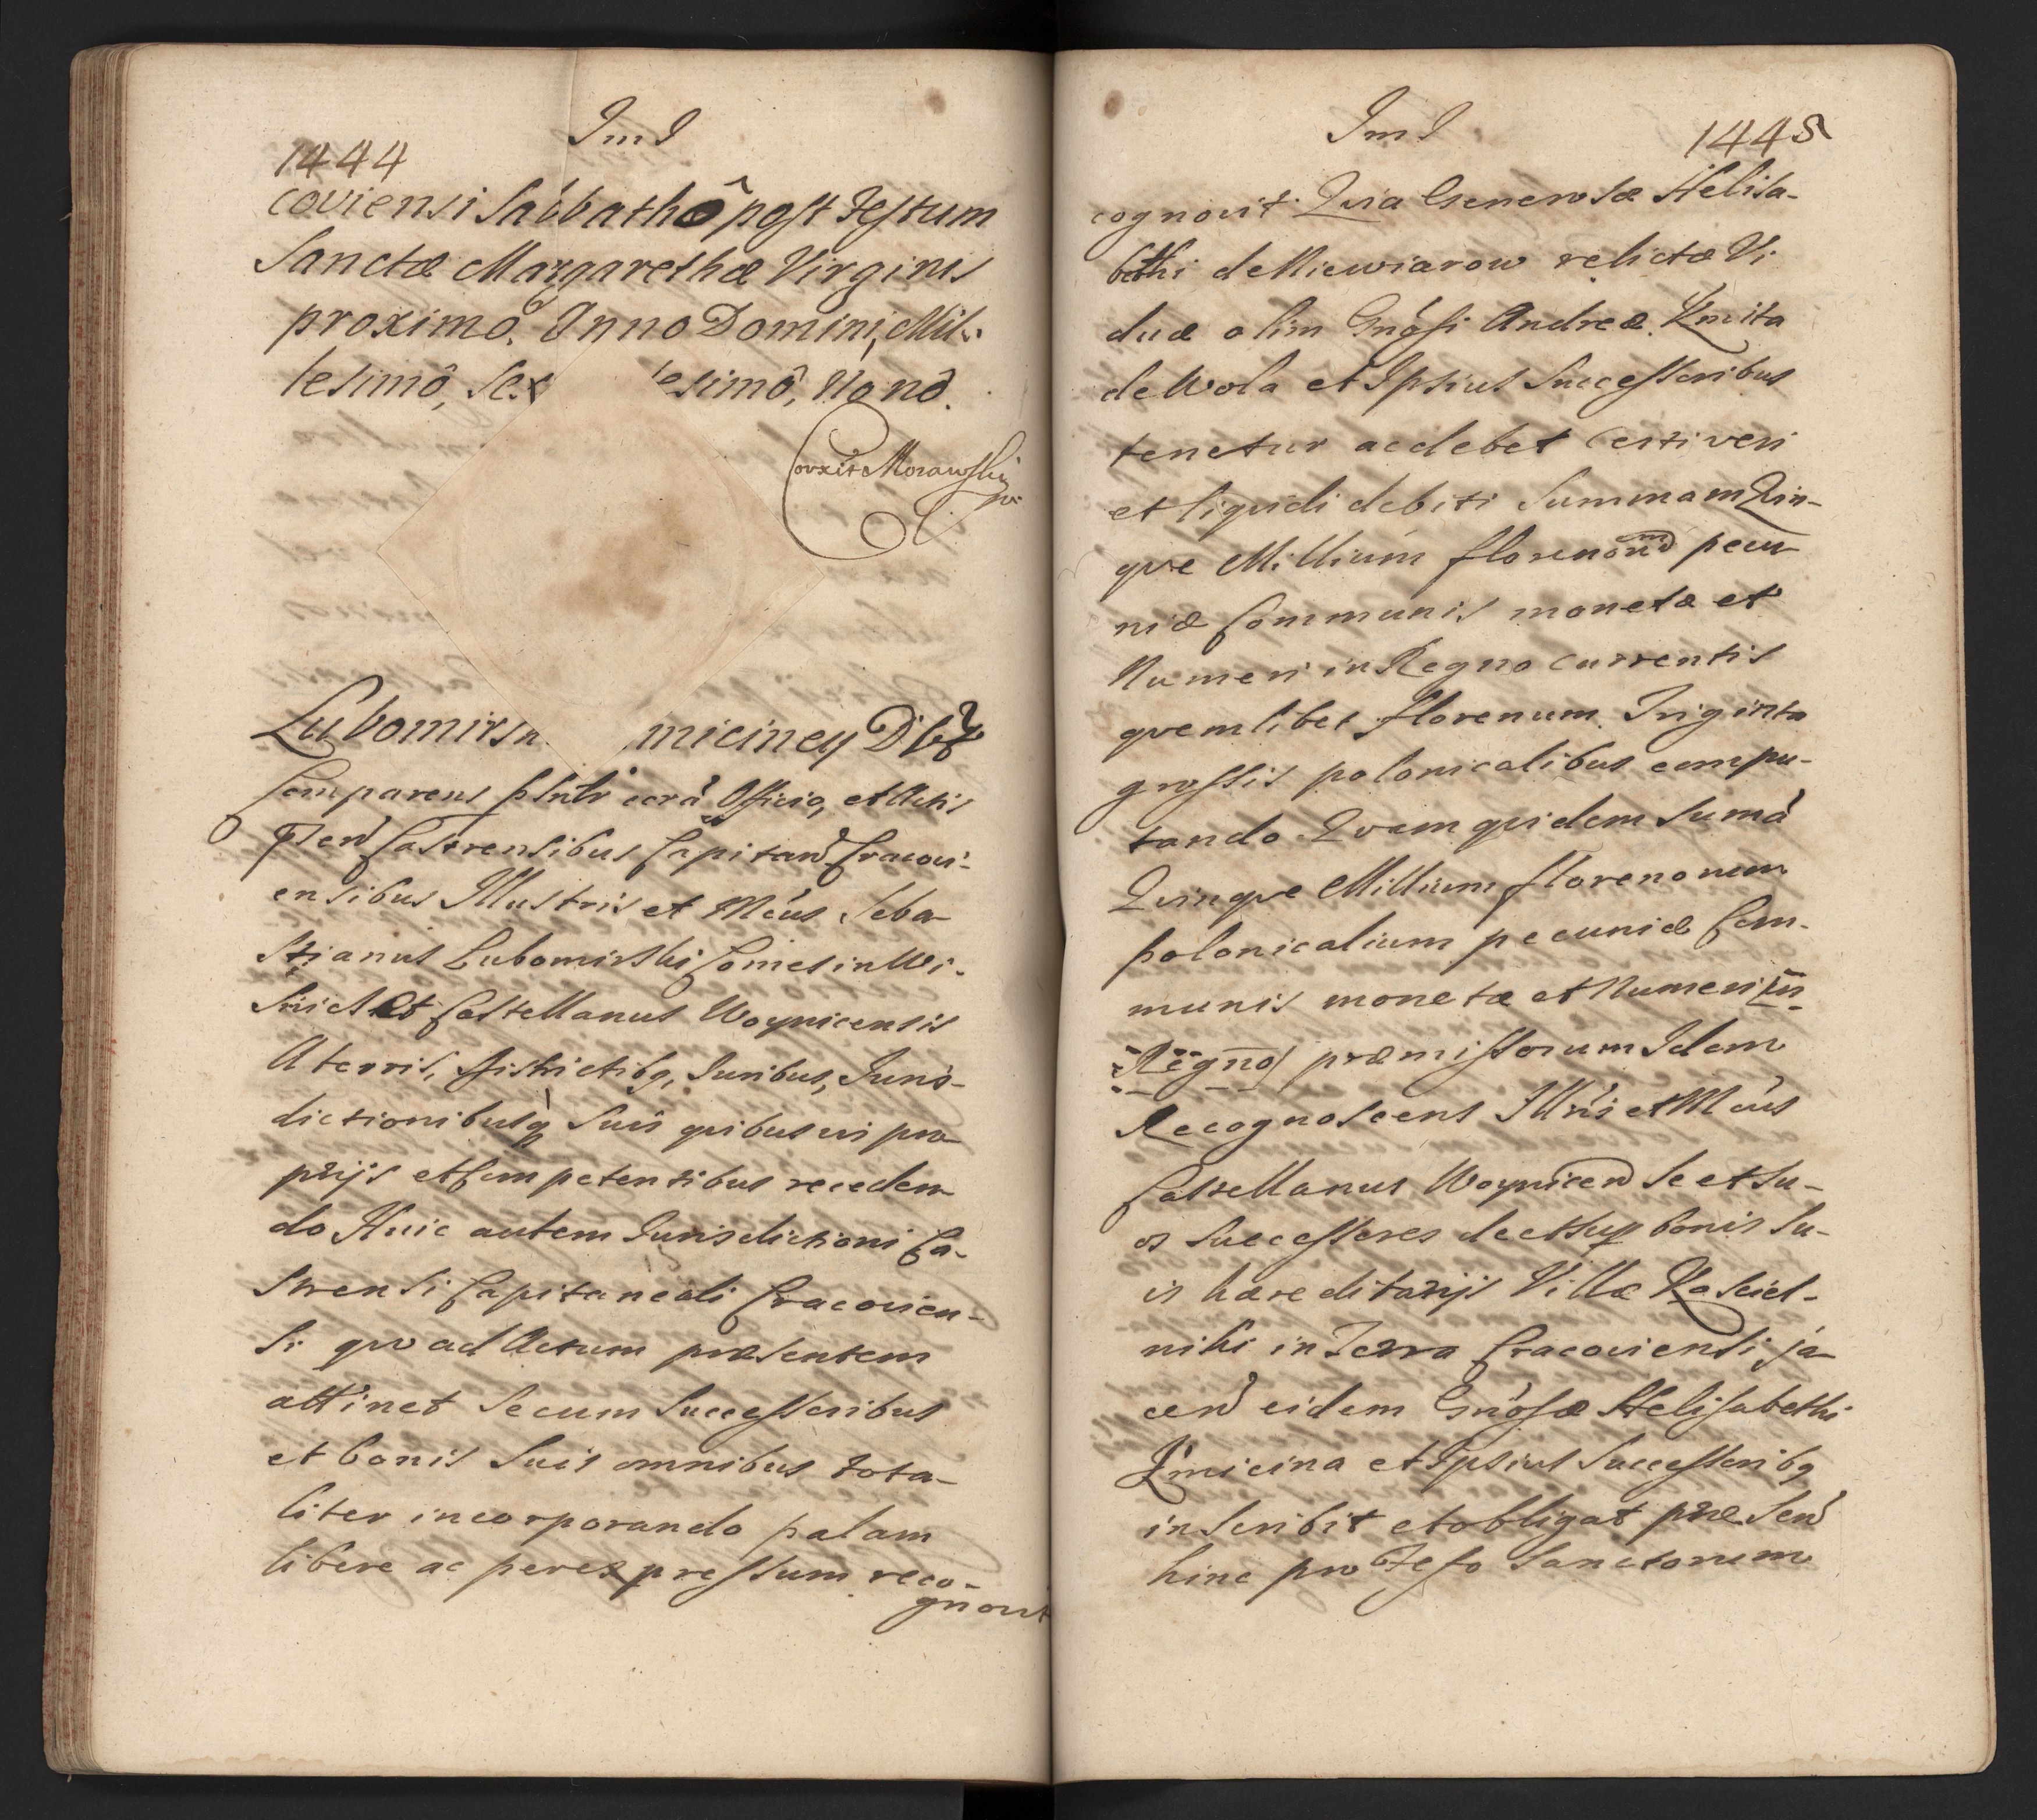 1444
Im I
coviensi Sabbathô post Festum
Sanctæ Margarethæ Virginis
proximô. Anno Domini, Mil-
lesimô, Sex esimô, Nonô.
Corxit Morawski
Lubomirsk miciney Dbt
Comparens pntr corà Officio, et Actis
Castrensibus Capitan Cracovi-
ensibus Illustris et Mcus Seba-
stianus Lubomirski Comes in Wi-
snicz et Castellanus Woynicensis
A terris, districtibq, Juribus, Juris-
dictionibusq Suis quibusvis pro-
prijs et Competentibus receden-
do Huic autem Jurisdictioni Ca-
strensi Capitaneali Cracovien-
si quo ad Actum præsentem
attinet Se cum Successoribus
et bonis Suis omnibus tota-
liter incorporando palam
libere ac per expressum reco-
gnovit
Im I
1445
cognovit Quia Generosæ Helisa-
bethi de Miewiarow relictæ Vi
duæ olim Gnosi Andreæ Kmita
de Wola et Ipsius Successoribus
tenetur ac debet certi veri
et liquidi debiti Summam Qin-
qve Millium florenorum pecu-
niæ Communis monetæ et
Numeri in Regno currentis
qvemlibet florenum Triginta
grossis polonicalibus compu-
tando Qvam qvidem Sumà
Qvinqve Millium florenorum
polonicalium pecuniæ Com-
munis monetæ et Numeri in
Regno præmissorum Idem
Recognoscens Illris et Mcus
Castellanus Woynicen Se et Su-
os Successores de et sup bonis Su-
is hæreditarijs Villæ Kosciel-
niki in Terra Cracoviensi ja-
cen eidem Gnosæ Helisabethi
Kmicina et Ipsius Successoribq
inscribit et obligat præsen
hinc pro Festo Sanctorum